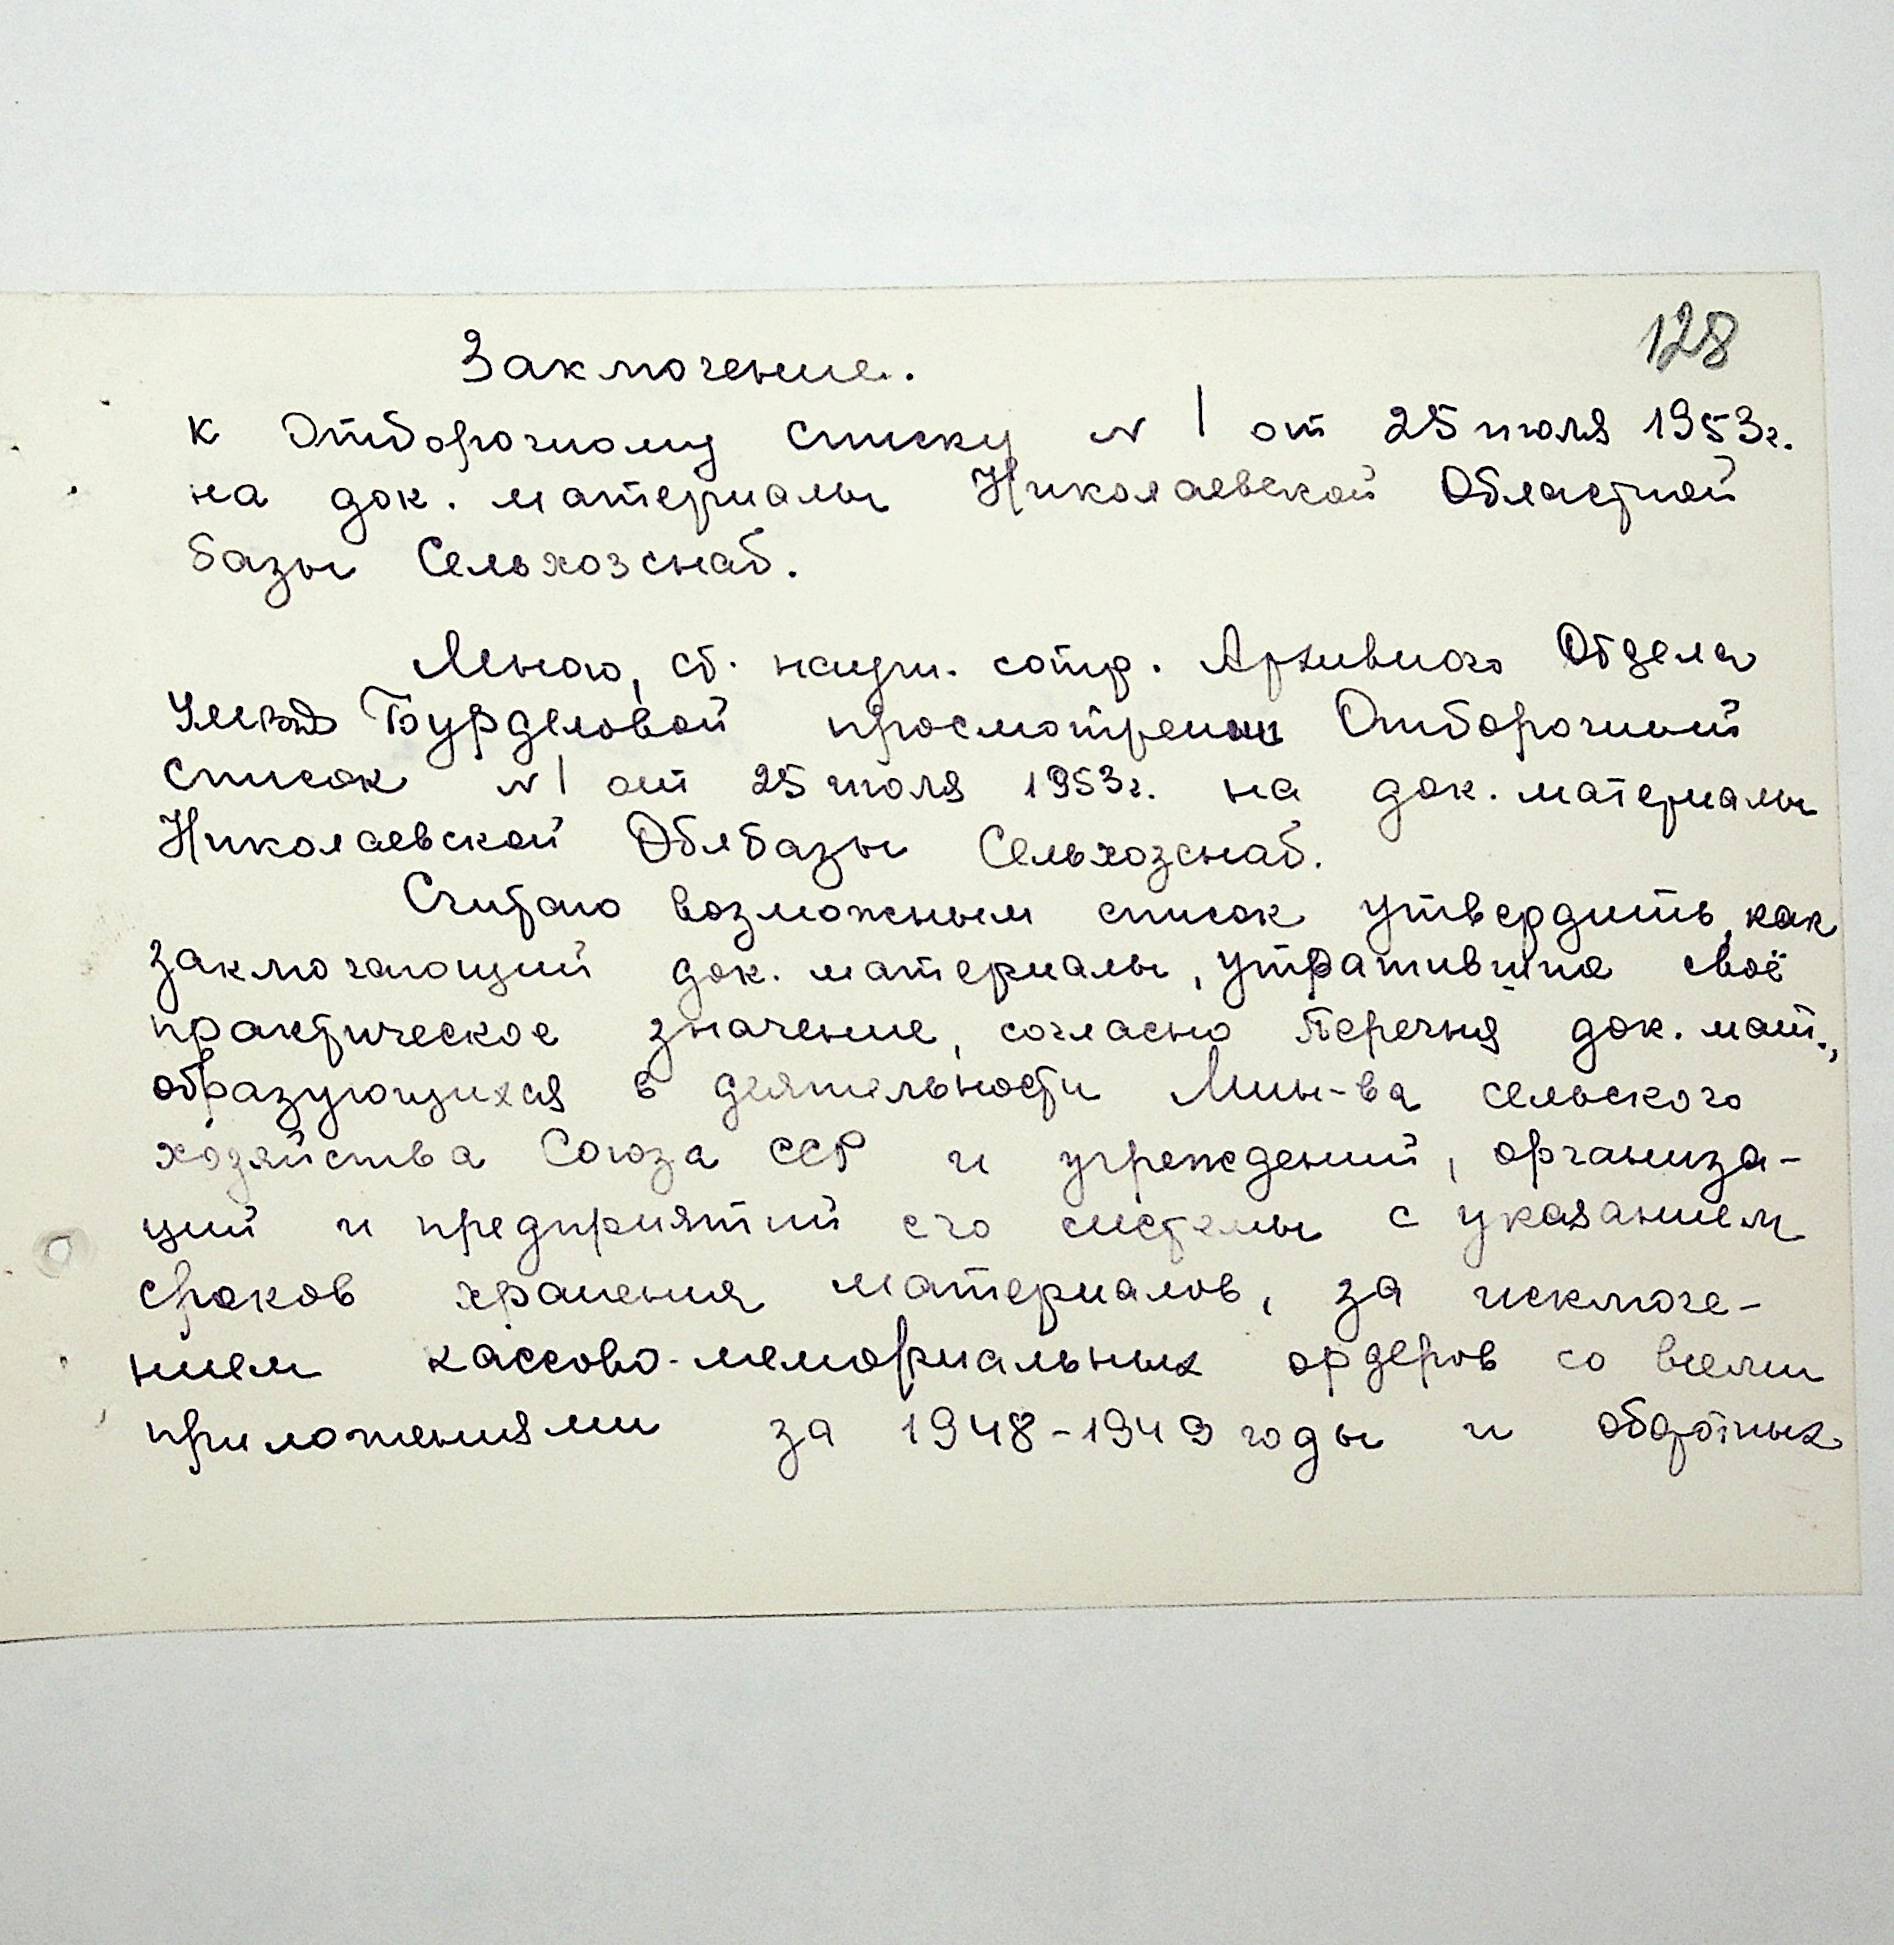 128
Заключение.
к Отборочному списку № 1 от 25 июля 1953г.
на док. материалы Николаевской Областной
базы Сельхозснаб.
Мною, ст. научн. сотр. Архивного Отдела
УМВД Бурделовой просмотрен Отборочный
список № 1 от 25 июля 1953г. на док. материалы
Николаевской Облбазы Сельхозснаб.
Считаю возможным список утвердить, как
заключающий док. материалы, утратившие своё
практическое значение, согласно Перечня док. мат.,
образующихся в деятельности Мин-ва сельского
хозяйства Союза ССР и учреждений, организа-
ций и предприятий его системы с указанием
сроков хранения материалов, за исключе-
нием кассово-мемориальных ордеров со всеми
приложениями за 1948-1949 годы и оборотных